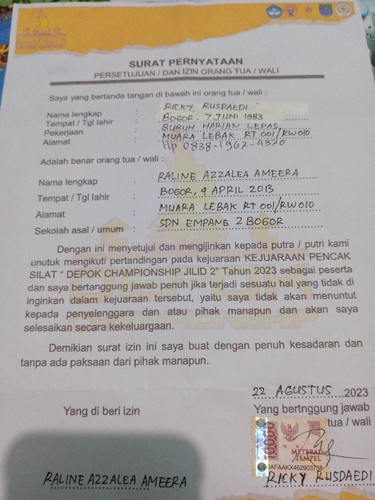 SURAT PERNYATAAN
PERSETUJUAN / DAN IZIN ORANG TUA / WALI
Saya yang bertanda tangan di bawah ini orang tua / wali :
Nama lengkap : RICKY RUSDAEDI
Tempat / Tgl lahir : BOGOR, 7 JUNI 1983
Pekerjaan : BURUH HARIAN LEPAS
Alamat : MUARA LEBAK RT 001/RW 010
Tlp 0838-1967-4370
Adalah benar orang tua / wali :
Nama lengkap : RALINE AZZALEA AMEERA
Tempat / Tgl lahir : BOGOR, 9 APRIL 2013
Alamat : MUARA LEBAK RT 001/RW 010
Sekolah asal / umum : SDN EMPANG 2 BOGOR
Dengan ini menyetujui dan mengijinkan kepada putra / putri kami
untuk mengikuti pertandingan pada kejuaraan KEJUARAAN PENCAK
SILAT " DEPOK CHAMPIONSHIP JILID 2" Tahun 2023 sebagai peserta
dan saya bertanggung jawab penuh jika terjadi sesuatu hal yang tidak di
inginkan dalam kejuaraan tersebut, yaitu saya tidak akan menuntut
kepada penyelenggara dan atau pihak manapun dan akan saya
selesaikan secara kekeluargaan.
Demikian surat izin ini saya buat dengan penuh kesadaran dan
tanpa ada paksaan dari pihak manapun.
22 AGUSTUS 2023
Yang di beri izin
Yang bertnggung jawab
tua / wali
10000
METERAI
TEMPEL
RALINE AZZALEA AMEERA
RICKY RUSDAEDI